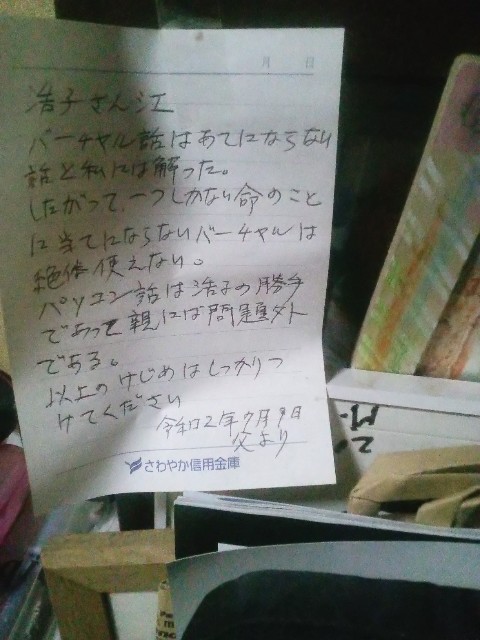 月　日
浩子さん江
バーチャル話はあてにならない
話と私には解った。
したがって、一つしかない命のこと
に当てにならないバーチャルは
絶体使えない。
パソコン話は浩子の勝手
であって親には問題外
である。
以上のけじめはしっかりつ
けてください
令和2年7月9日
父より
さわやか信用金庫